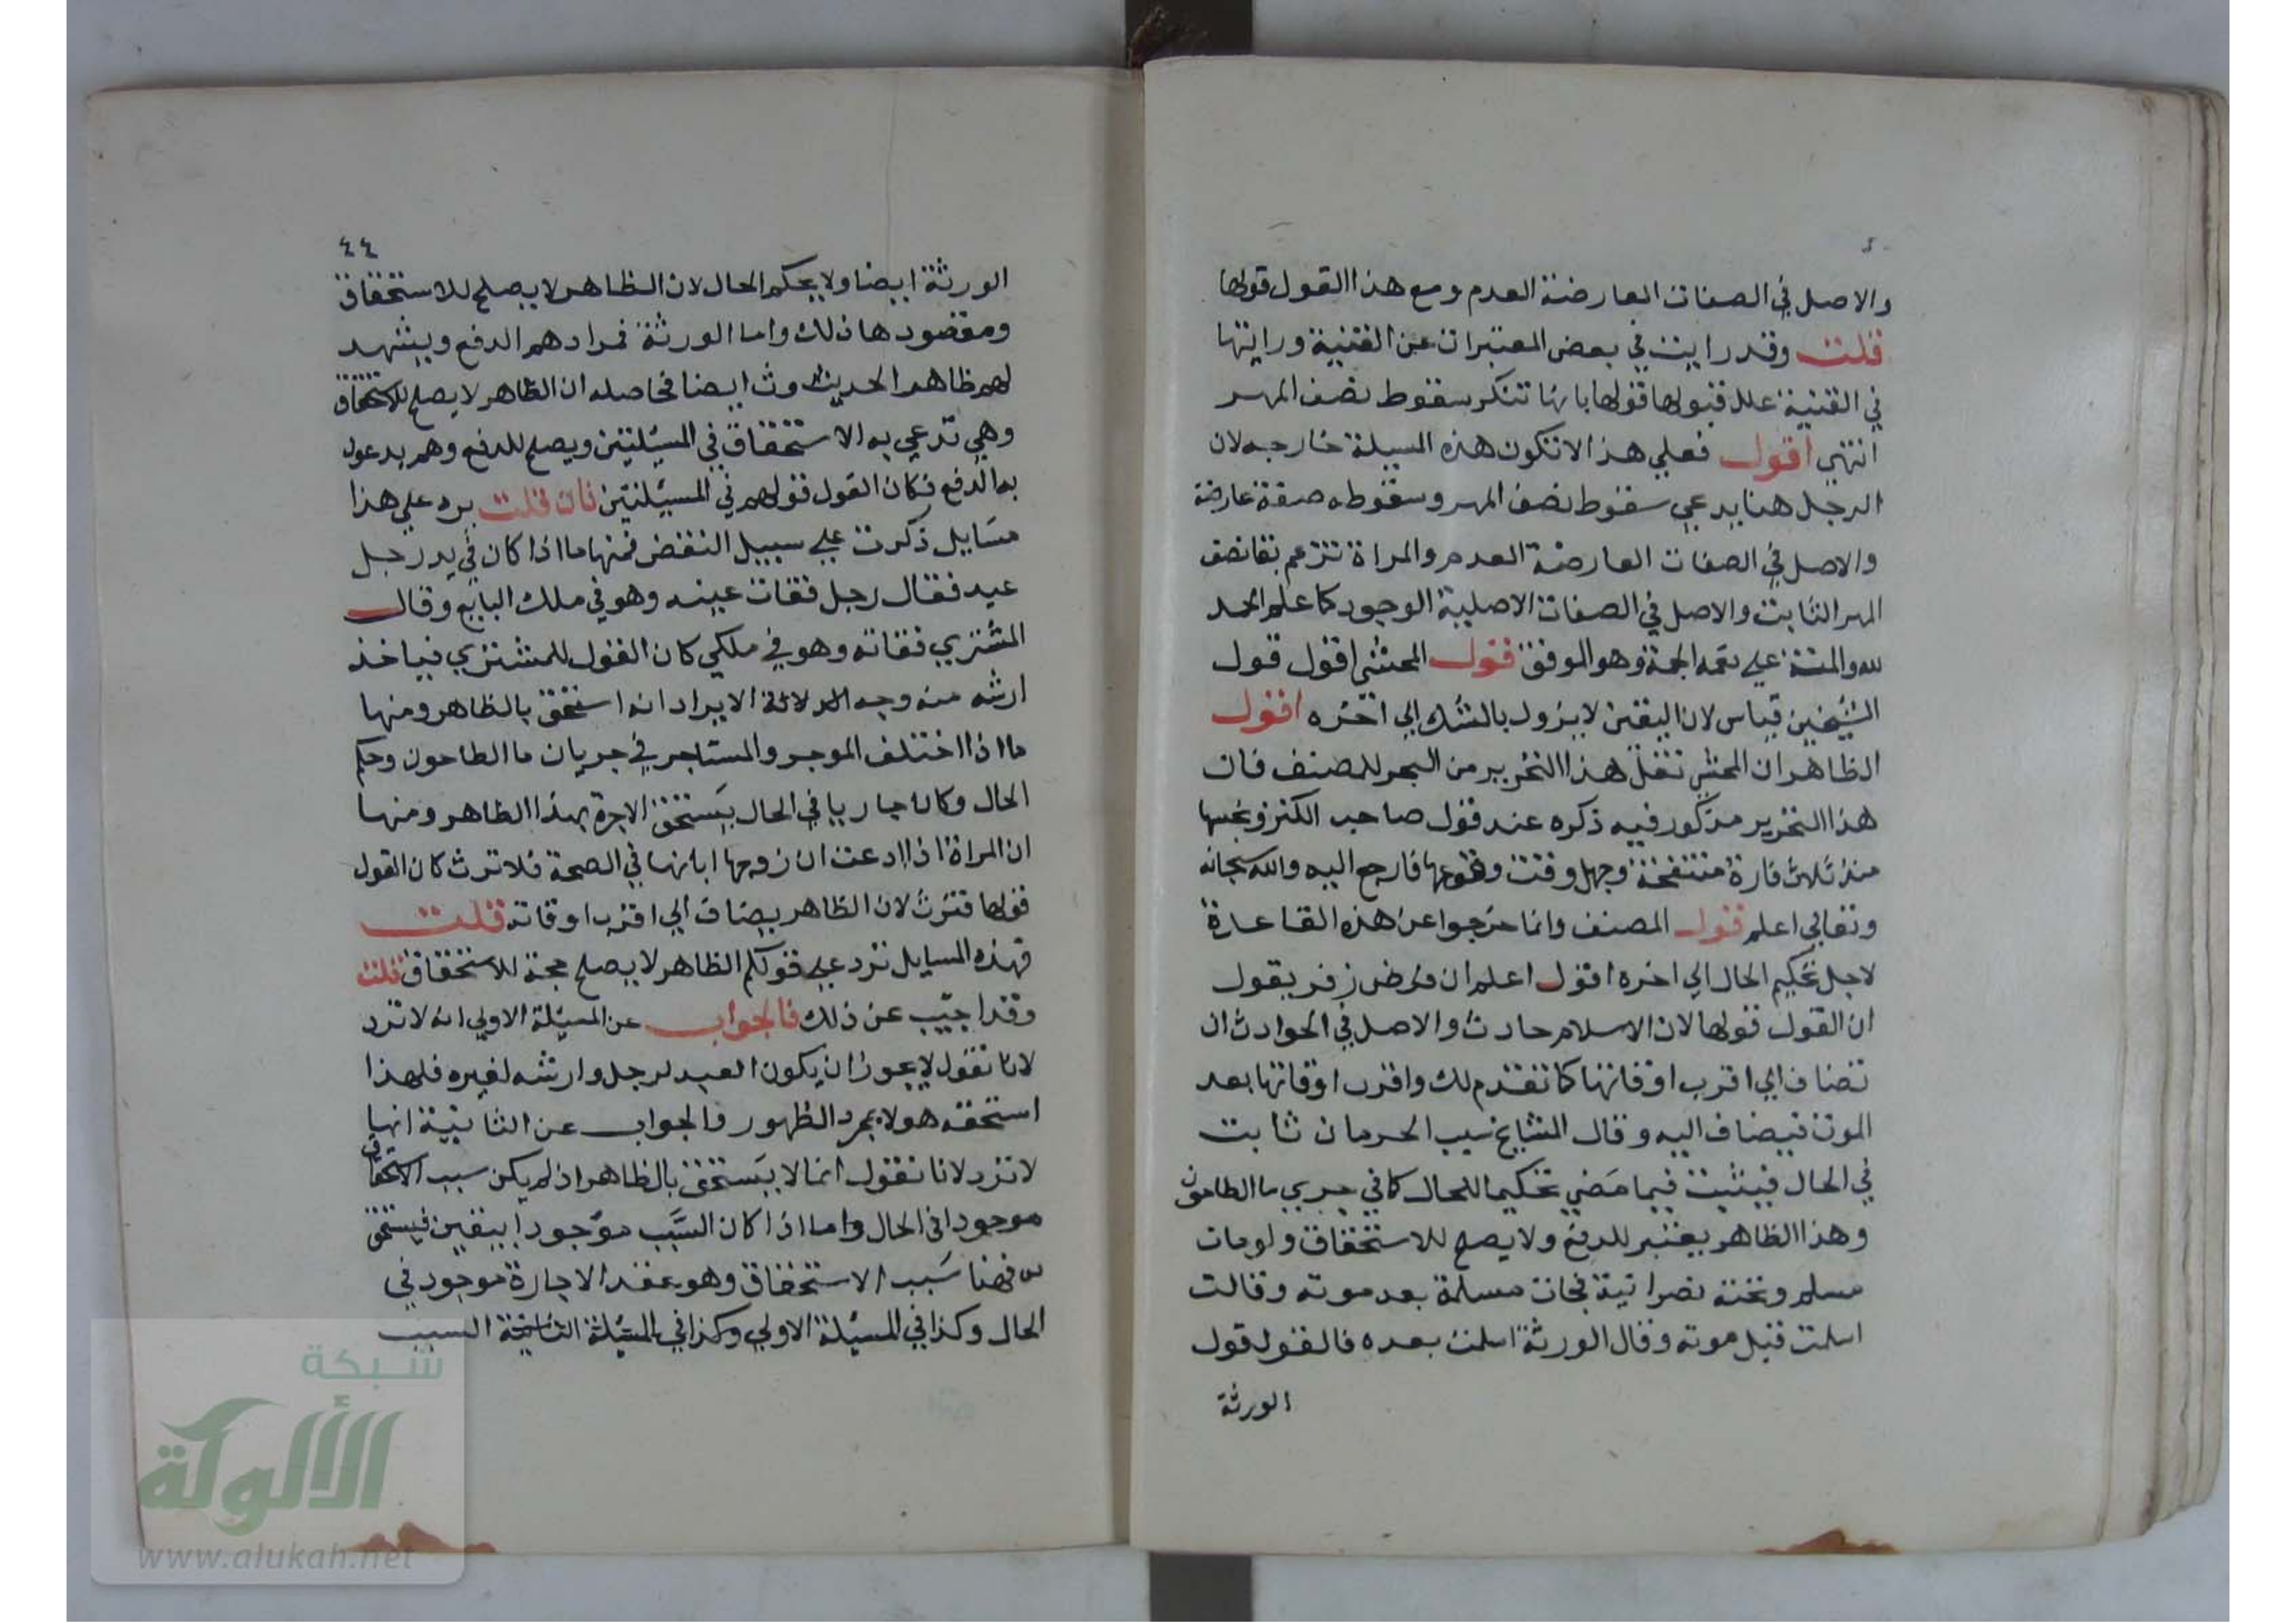 والاصل في الصفات العارضة العدم ومع هذا القول قولها
قلت وقد رايت في بعض المعتبرات عن القنية ورايتها
في القنية علل قبولها قولها بانها تنكر سقوط نصف المهر
انتهي اقول فعلي هذا لا تكون هذه المسيلة خارجه لان
الرجل هنا يدعي سقوط نصف المهر وسقوطه صفة عارضة
والاصل في الصفات العارضة العدم والمراة تزعم بقا نصف
المهر الثابت والاصل في الصفات الاصلية الوجود كما علم الحمد
لله والمنة علي نعمه الجمة وهو الموفق قول المحشي اقول قول
الشيخين قياس لان اليقين لا يزول بالشك الي اخره اقول
الظاهر ان المحشي نقل هذا التحرير من البحر للمصنف فان
هذا التحرير مذكور فيه ذكره عند قول صاحب الكنز ونجسها
منذ ثلاث فارة منتفخة وجهل وقت وقوعها فارجع اليه والله سبحانه
وتعالي اعلم قول المصنف وانما خرجوا عن هذه القاعدة
لاجل تحكيم الحال الي اخره اقول اعلم ان فرض زفر يقول
ان القول قولها لان الاسلام حادث والاصل في الحوادث ان
تضاف الي اقرب اوقاتها كما تقدم لك واقرب اوقاتها بعد
الموت فيضاف اليه وقال المشايخ سبب الحرمان ثابت
في الحال فيثبت فيما مضي تحكيما للحال كما في جري ما الطاحون
وهذا الظاهر يعتبر للدفع ولا يصلح للاستحقاق ولو مات
مسلم وتحته نصرانية فجات مسلمة بعد موته وقالت
اسلمت قبل موته وقال الورثة اسلمت بعده فالقول قول
الورثة
٤٤
الورثة ايضا ولا يحكم الحال لان الظاهر لا يصلح للاستحقاق
ومقصودها ذلك واما الورثة فمرادهم الدفع ويشهد
لهم ظاهر الحديث ايضا فحاصله ان الظاهر لا يصلح للاستحقاق
وهي تدعي به الاستحقاق في المسيلتين ويصلح للدفع وهم يدعون
به الدفع فكان القول قولهم في المسيلتين فان قلت يرد علي هذا
مسايل ذكرت علي سبيل النقض فمنها ما اذا كان في يد رجل
عبد فقال رجل فقات عينه وهو في ملك البايع وقال
المشتري فقاته وهو في ملكي كان القول للمشتري فياخذ
ارشه منه وجه الايراد انه استحق بالظاهر ومنها
ما اذا اختلف الموجر والمستاجر في جريان ما الطاحون وحكم
الحال وكان جاريا في الحال يستحق الاجرة بهذا الظاهر ومنها
ان المراة اذا ادعت ان زوجها ابانها في الصحة فلا ترث كان القول
قولها فترث لان الظاهر يضاف الي اقرب اوقاته قلت
فهذه المسايل ترد علي قولكم الظاهر لا يصلح حجة للاستحقاق قلت
وقد اجيب عن ذلك فالجواب عن المسيلة الاولي انه لا ترد
لانا نقول لا يجوز ان يكون العبد لرجل وارشه لغيره فلهذا
استحقه هو لا بمجرد الظهور والجواب عن الثانية انها
لا ترد لانا نقول انما لا يستحق بالظاهر اذ لم يكن سبب الاستحقاق
موجودا في الحال واما اذا كان السبب موجودا بيقين فيستحق
فهنا سبب الاستحقاق وهو عقد الاجارة موجود في
الحال وكذا في المسيلة الاولي وكذا في المسيلة السبب
شبكة
الألوكة
www.alukah.net